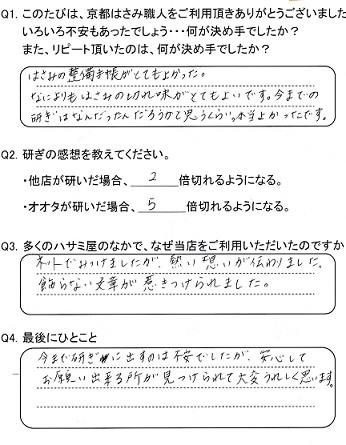 Q1. このたびは、京都はさみ職人をご利用頂きありがとうございました
いろいろ不安もあったでしょう・・・何が決め手でしたか？
また、リピート頂いたのは、何が決め手でしたか？
はさみの整備手帳がとてもよかった。
なによりもはさみの切れ味がとてもよいです。今までの
研ぎはなんだったんだろうかと思うくらい本当よかったです。
Q2. 研ぎの感想を教えてください。
・他店が研いだ場合、 2 倍切れるようになる。
・オオタが研いだ場合、 5 倍切れるようになる。
Q3. 多くのハサミ屋のなかで、なぜ当店をご利用いただいたのですか
ネットでみつけましたが、熱い想いが伝わりました。
飾らない文章が惹きつけられました。
Q4. 最後にひとこと
今まで研ぎに出すのは不安でしたが、安心して
お願い出来る所が見つけられて大変うれしく思います。